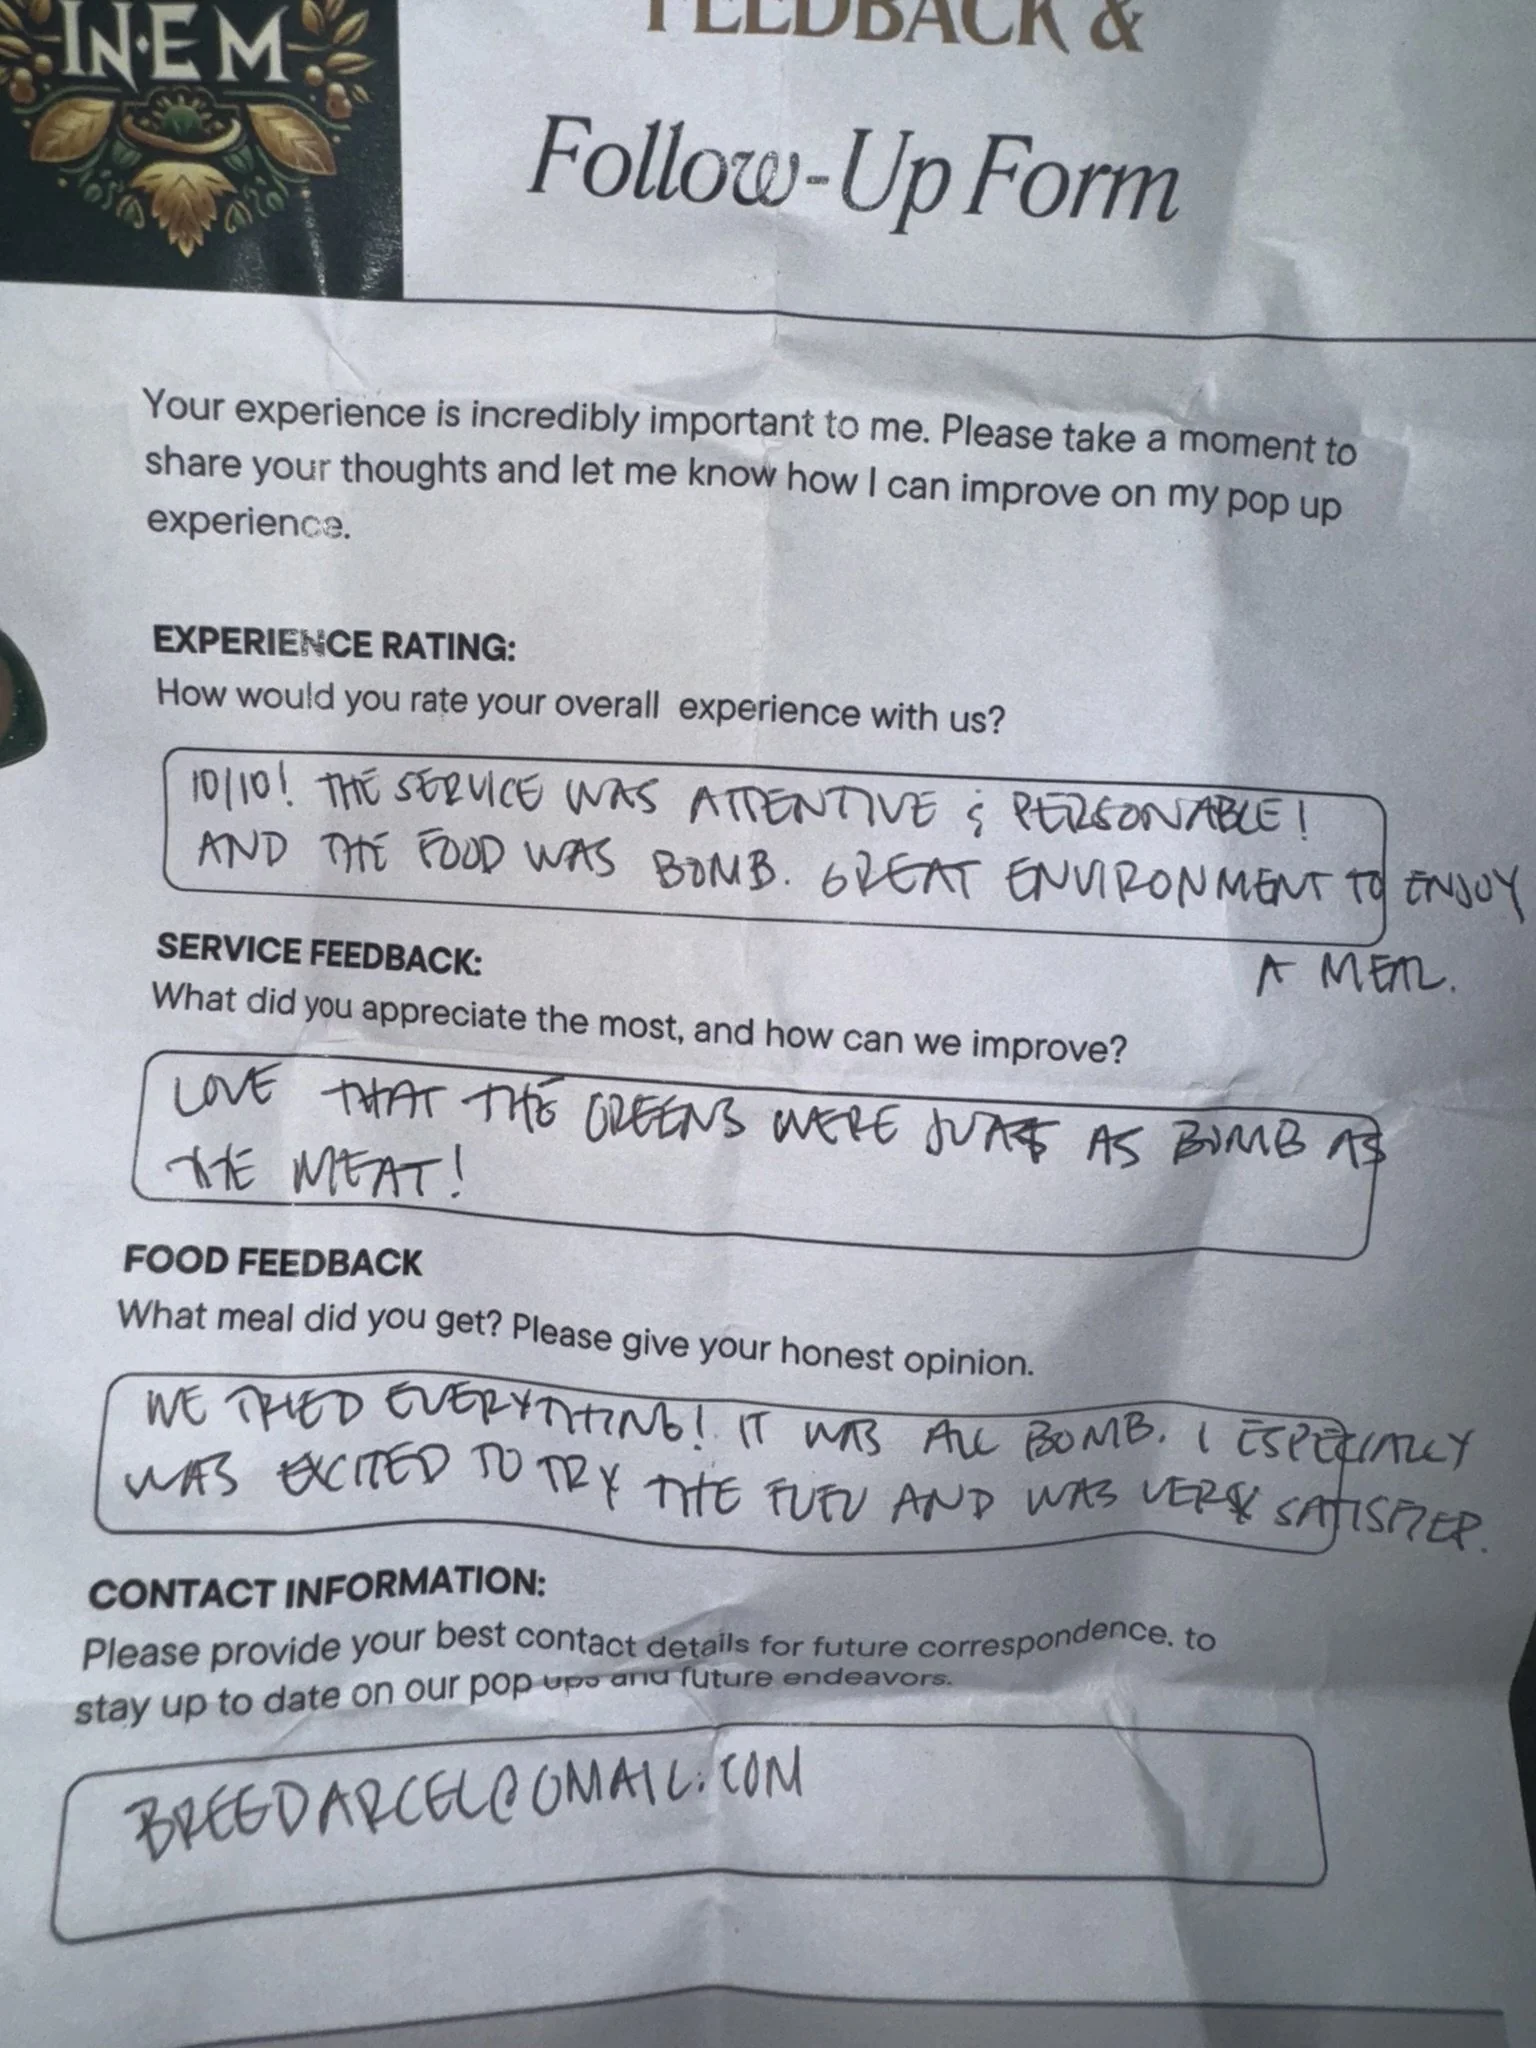 IN·EM
FEEDBACK &
Follow-Up Form
Your experience is incredibly important to me. Please take a moment to
share your thoughts and let me know how I can improve on my pop up
experience.
EXPERIENCE RATING:
How would you rate your overall experience with us?
10/10! THE SERVICE WAS ATTENTIVE & PERSONABLE!
AND THE FOOD WAS BOMB. GREAT ENVIRONMENT TO ENJOY
A MEAL.
SERVICE FEEDBACK:
What did you appreciate the most, and how can we improve?
LOVE THAT THE GREENS WERE JUST AS BOMB AS
THE MEAT!
FOOD FEEDBACK
What meal did you get? Please give your honest opinion.
WE TRIED EVERYTHING! IT WAS ALL BOMB. I ESPECIALLY
WAS EXCITED TO TRY THE FUFU AND WAS VERY SATISFIED.
CONTACT INFORMATION:
Please provide your best contact details for future correspondence, to
stay up to date on our pop ups and future endeavors.
BREEDARCEL@GMAIL.COM